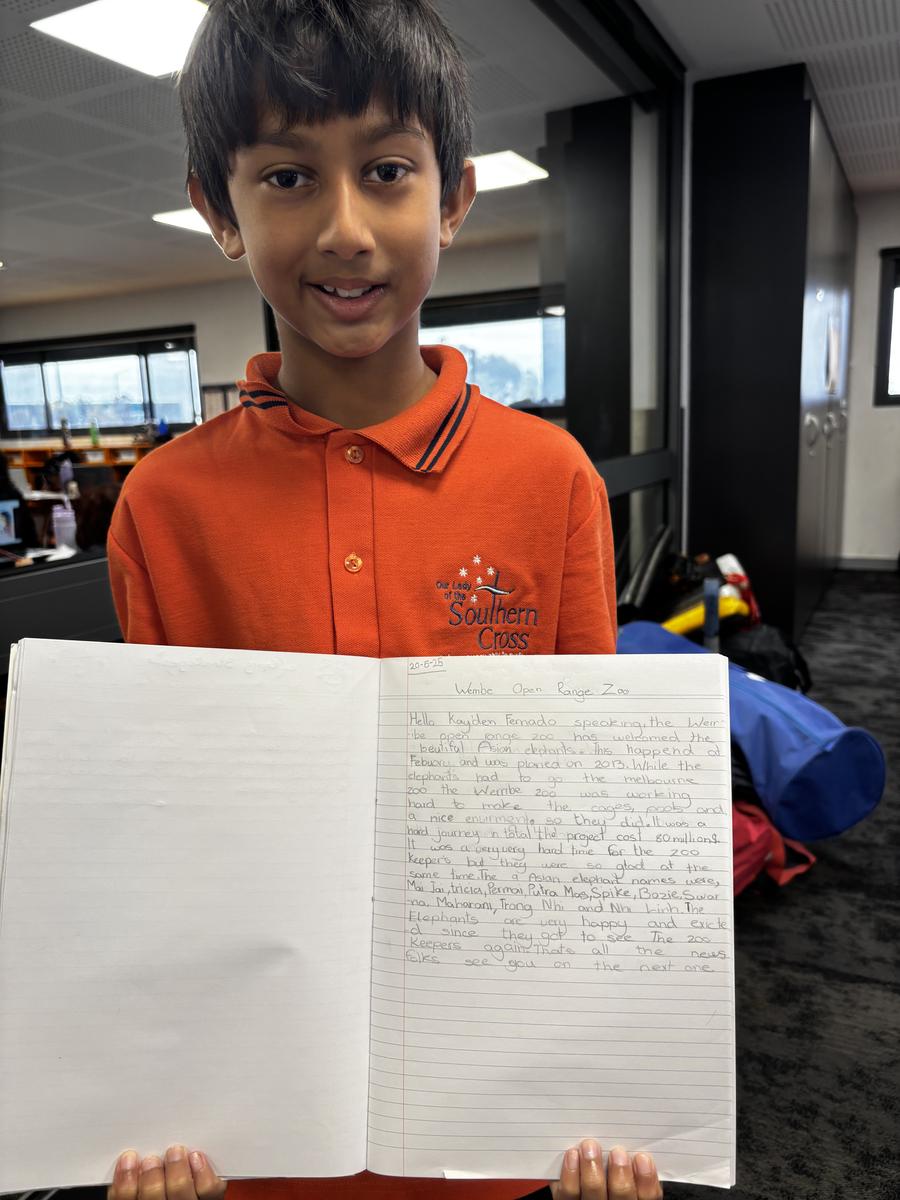 Our Lady
of the
Southern
Cross
20-5-25
Werribe Open Range Zoo
Hello Kayden Fernado speaking, the Werr-
ibe open range zoo has welcomed the
beutiful Asian elephants. This happend at
Febuary and was planed on 2013. While the
elephants had to go the melbourne
zoo the Werribe zoo was working
hard to make the cages, pools and
a nice so they did. It was a
hard journey in total the project cost 80 millions.
It was a very very hard time for the zoo
keepers but they were so glad at the
same time. The 9 Asian elephant names were,
Mai Jai, tricia, Permai, Putra Mas, Spike, Bozie, Swar
na, Maharani, Trong Nhi and Nhi Linh. The
Elephants are very happy and exicte
d since they got to see The zoo
keepers again. Thats all the news
folks see you on the next one